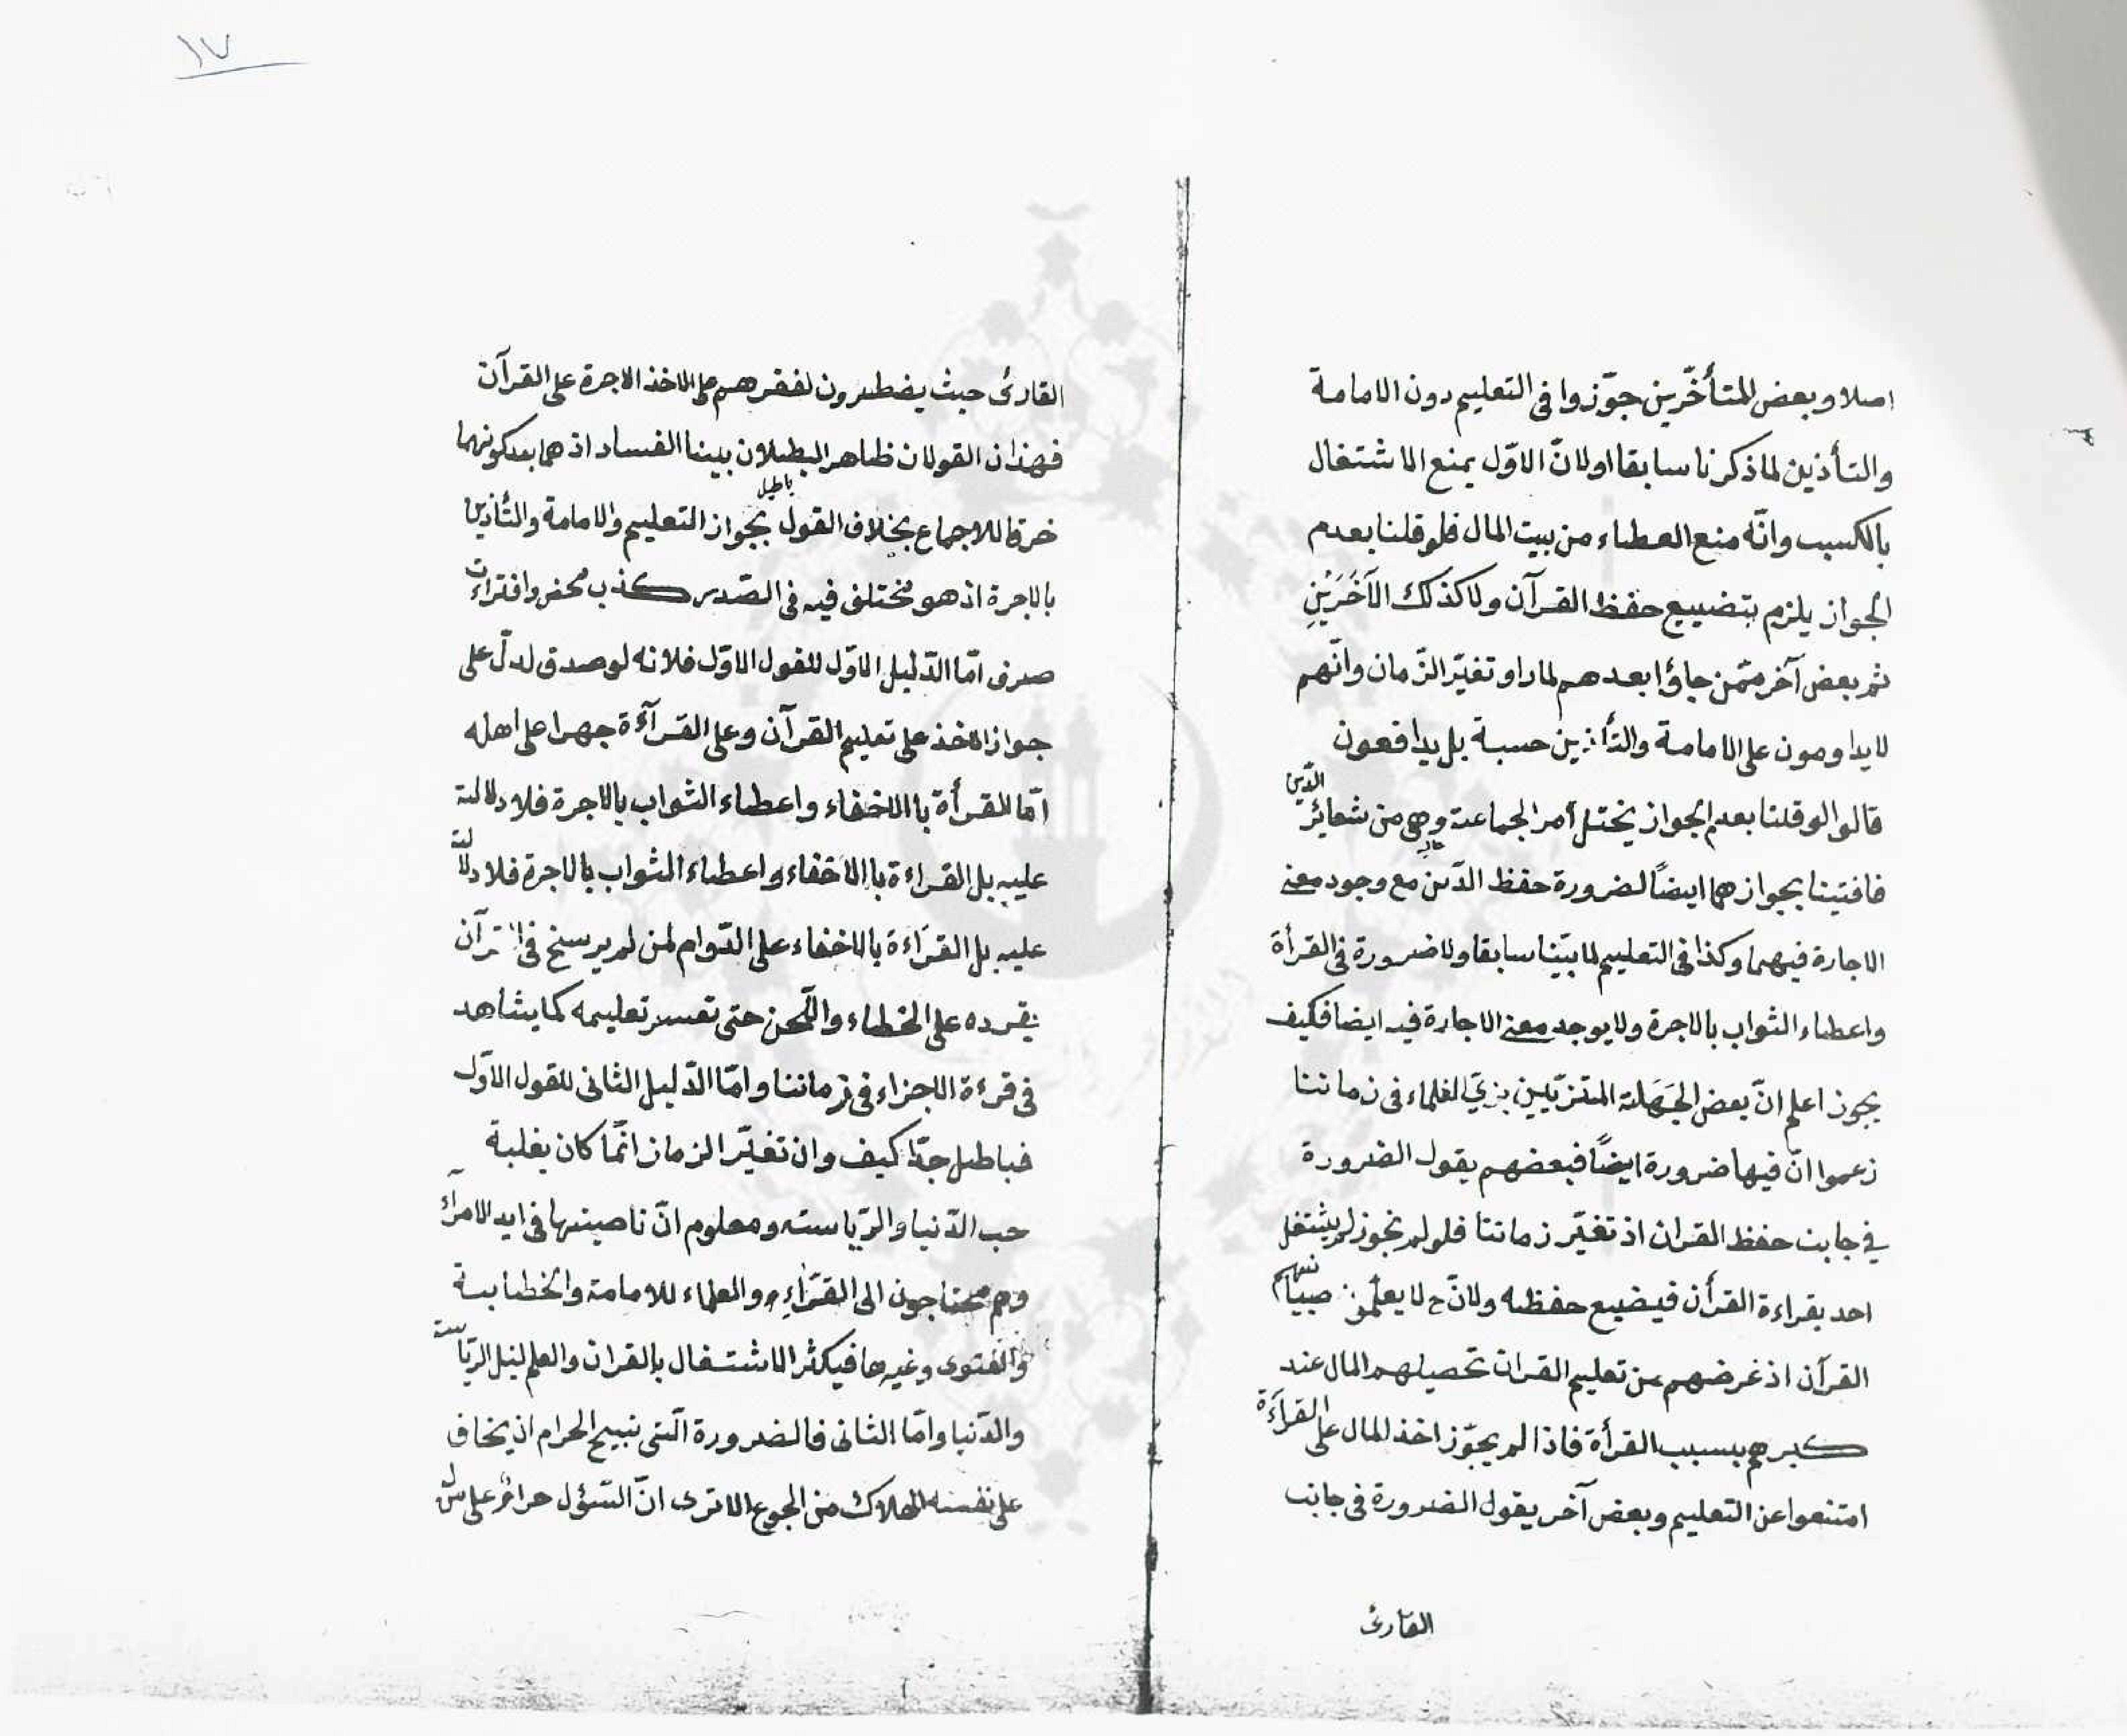 ١٧
اصلا وبعض المتأخّرين جوّزوا فى التعليم دون الامامة
والتأذين لما ذكرنا سابقا اولانّ الاوّل يمنع الاشتغال
بالكسب وانّه منع العطاء من بيت المال فلو قلنا بعدم
الجواز يلزم بتضييع حفظ القرآن ولا كذلك الآخَرَيْنِ
ثم بعض آخر ممّن جاؤا بعدهم لما راو تغيّر الزّمان وانّهم
لا يداومون على الامامة والتأذين حسبة بل يدافعون
قالوا لو قلنا بعدم الجواز يختل أمر الجماعة وهى من شعائر الدّين
فافتينا بجوازهما ايضاً لضرورة حفظ الدّين مع وجود معنى
الاجارة فيهما وكذا فى التعليم لما بيّنا سابقا ولا ضرورة فى القرأة
واعطاء الثواب بالاجرة ولا يوجد معنى الاجارة فيه ايضا فكيف
يجوز اعلم انّ بعض الجَهَلة المتزيّين بزيّ العلماء فى زماننا
زعموا انّ فيها ضرورة ايضاً فبعضهم يقول الضرورة
في جانب حفظ القران اذ تغيّر زماننا فلو لم نجوز لم يشتغل
احد بقراءة القرأن فيضيع حفظه ولانّ ح لا يعلّمون صبيانهم
القرآن اذ غرضهم من تعليم القران تحصيلهم المال عند
كبرهم بسبب القرأة فاذا لم يجوّز اخذ المال على القراءة
امتنعوا عن التعليم وبعض آخر يقول الضرورة فى جانب
القارئ
القارئ حيث يضطرون لفقرهم على الاخذ الاجرة على القرآن
فهذان القولان ظاهر البطلان بينا الفساد اذ هما بعد كونهما
خرقا للاجماع بخلاف القول بجواز التعليم والامامة والتأذين
باطل
بالاجرة اذ هو مختلف فيه فى الصّدر كذب محض وافتراءت
صرف امّا الدّليل الاوّل للقول الاوّل فلانه لو صدق لدلّ على
جواز الاخذ على تعليم القرآن وعلى القرآءة جهرا على اهله
امّا القرأة بالاخفاء واعطاء الثواب بالاجرة فلا دلالة
عليه بل القراءة بالاخفاء واعطاء الثواب بالاجرة فلا دلالة
عليه بل القرَاءة بالاخفاء على الدّوام لمن لم يرسخ فى القرآن
يقرده على الخطاء واللّحن حتى تعسر تعليمه كما يشاهد
فى قرءة الاجزاء فى زماننا وامّا الدّليل الثانى للقول الاوّل
فباطل جدّا كيف وان تغيّر الزمان انّما كان بغلبة
حب الدّنيا والرّياسة ومعلوم انّ ناصيتها فى ايد الامرآء
وهم محتاجون الى القرّاء والعلماء للامامة والخطابة
والفتوى وغيرها فيكثر الاشتغال بالقران والعلم لنيل الرّياسة
والدّنيا وامّا الثانى فالضرورة الّتى تبيح الحرام ان يخاف
على نفسه الهلاك من الجوع الا ترى انّ السّؤل حرام على من